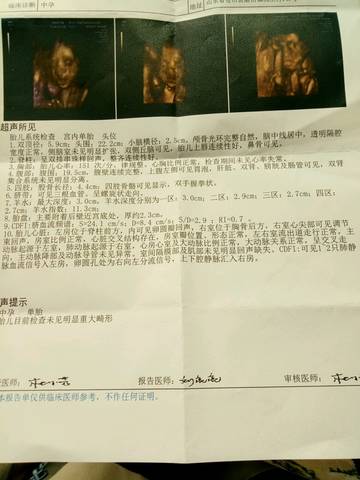 临床诊断 中孕
地址
超声所见
胎儿系统检查 宫内单胎 头位
1.双顶径:5.9cm;头围:22.2cm;小脑横径:2.5cm,颅骨光环完整自然,脑中线居中,透明隔腔
宽度正常,侧脑室未见明显扩张,双侧丘脑可见。胎儿上唇连续性好,鼻骨可见。
2.脊柱:呈双排串珠样回声,整齐连续性好。
3.胸部:胎儿心率:151 次/分,律规整。心胸比例正常,检查期间未见心率失常。
4.腹部:腹围:19.5cm,腹壁连续完整,上腹左侧可见胃泡,肝脏、双肾、膀胱及肠管可见,双肾
集合系统未见明显分离。
5.四肢:股骨长径:4.4cm;四肢骨骼可见显示,双手握拳状。
6.脐带:可见三根血管,呈螺旋状走向。
7.羊水:最大深度:3.0cm,羊水深度分别为一区:3.0cm;二区:2.9cm;三区:2.7cm;四区:
2.7cm;羊水指数:11.3cm;
8.胎盘:主要附着后壁近宫底处,厚约2.3cm。
9.CDFI:脐血流频谱:S=24.1 cm/s;D=8.4 cm/s;S/D=2.9 ;RI=0.7 。
10.胎儿心脏:左房位于脊柱前方,内可见卵圆瓣回声,右室位于胸骨后方,右室心尖部可见调节
束回声。房室比例正常,心脏交叉结构存在,房室瓣位置、形态正常,左右室流出道走行正常,主
动脉起源于左室,肺动脉起源于右室,心房心室及大动脉比例正常,大动脉关系正常,呈交叉走
向,主动脉降部及动脉导管未见异常,室间隔膜部及肌部未见明显回声缺失。CDFI:可见1-2只肺静
脉血流信号入左房,卵圆孔处为右向左分流信号,上下腔静脉汇入右房。
声提示
中孕 单胎
胎儿目前检查未见明显重大畸形
医师:
报告医师:
审核医师:
本报告单仅供临床医师参考,不作任何证明。